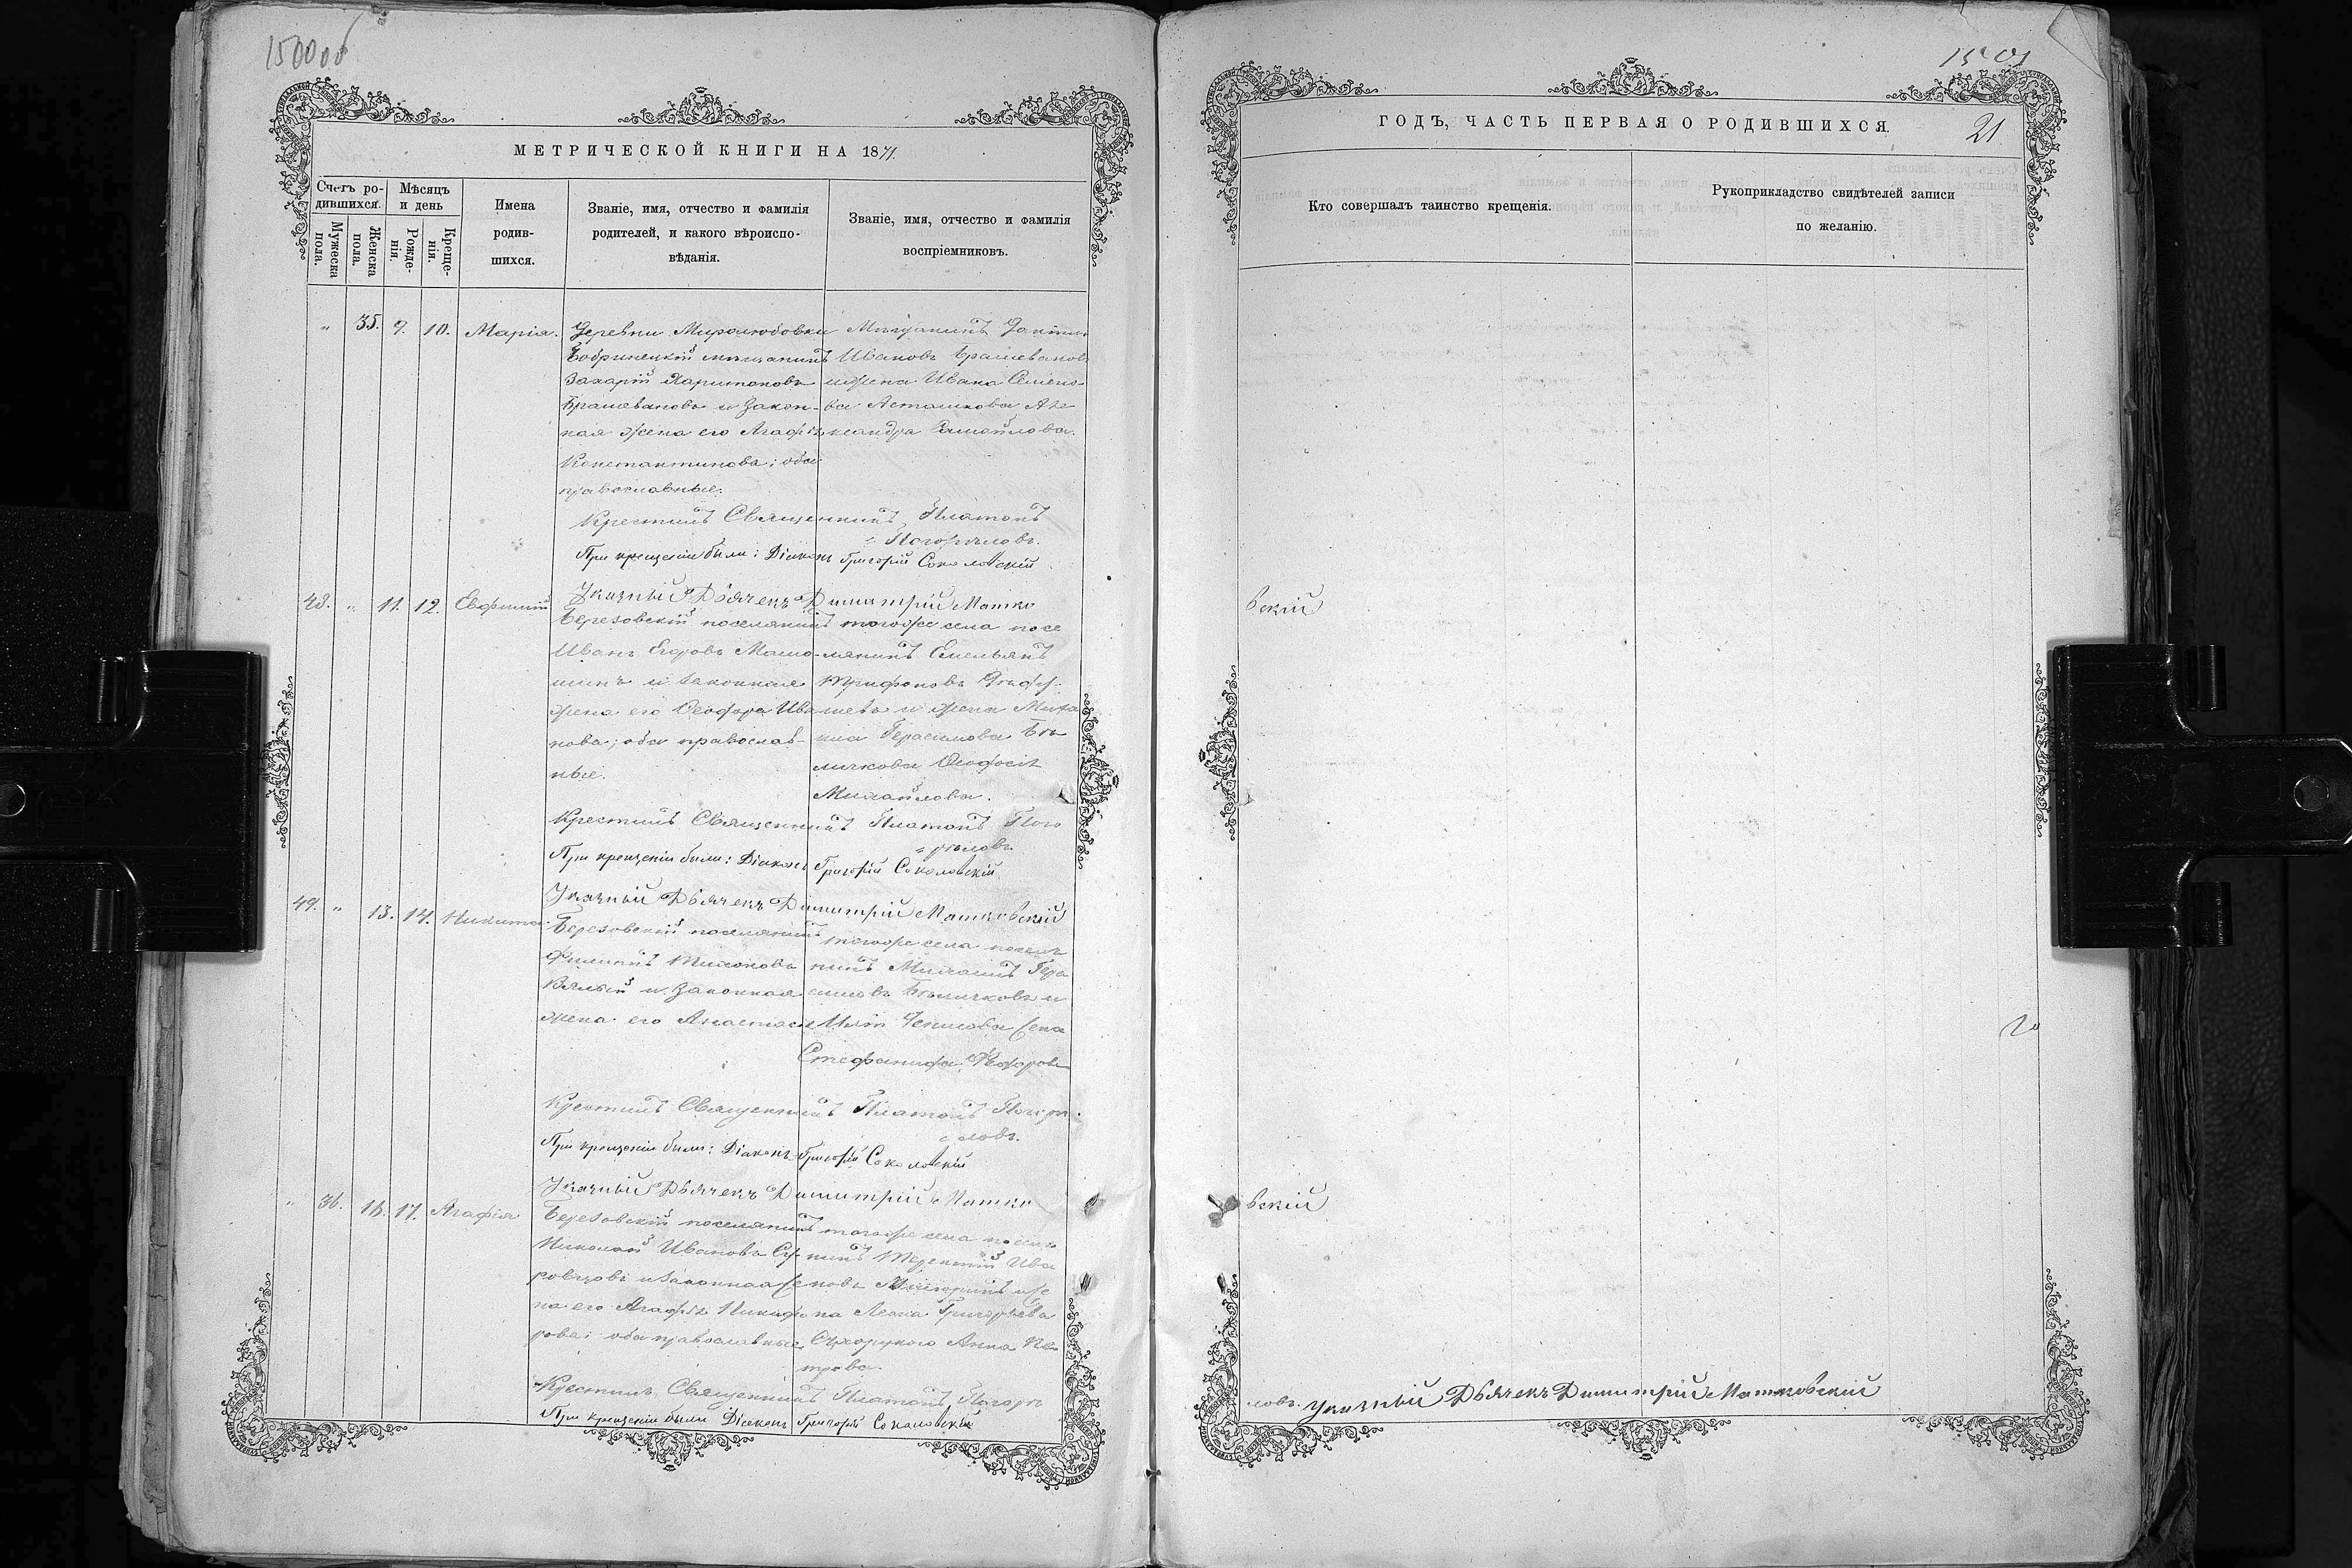 1500 об
МЕТРИЧЕСКОЙ КНИГИ НА 1871.
Счетъ ро-
дившихся.
Мужеска пола.
Женска пола.
Мѣсяцъ
и день
Рожде-
нія.
Креще-
нія.
Имена
родив-
шихся.
Званіе, имя, отчество и фамилія
родителей, и какого вѣроиспо-
вѣданія.
Званіе, имя, отчество и фамилія
воспріемниковъ.
" 35. 9. 10. Марія.
Деревни Миролюбовки
Бобринецкій мѣщанинъ
Захарій Харитоновъ
Брашевановъ и закон-
ная жена его Агафія
Константинова; оба
православные.
Мѣщанинъ
Ивановъ Брашевановъ
и жена Ивана Семено-
ва Асташкова Але
ксандра Самойлова.
Крестилъ Священникъ Платонъ
Погорѣловъ.
При крещеніи были: Діаконъ Григорій Соколовскій
Указный Дьячекъ Димитрій Матко
48. " 11. 12. Евфимій
Березовскій поселянинъ
Иванъ Егоровъ Мало-
шинъ и законная
жена его Ѳеодора Ива
нова; оба православ-
ные.
тогоже села посе
лянинъ Емельянъ
Трифоновъ
и жена Миха
ила Герасимова Бѣ
личкова Ѳеодосія
Михайлова.
Крестилъ Священникъ Платонъ Пого
рѣловъ.
При крещеніи были: Діаконъ Григорій Соколовскій
Указный Дьячекъ Димитрій Матковскій
49. " 13. 14. Никита.
Березовскій поселянинъ
Филиппъ Тихоновъ
Вялый и законная
жена его Анастасія
тогоже села поселя
нинъ Михаилъ Гера
симовъ Бѣличковъ и
жена
Стефанида Ѳедорова
Крестилъ Священникъ Платонъ Погорѣ
ловъ.
При крещеніи были: Діаконъ Григорій Соколовскій
Указный Дьячекъ Димитрій Матко
" 36. 16. 17. Агафія
Березовскій поселянинъ
Николай Ивановъ Су
ровцовъ и законная же
на его Агафія Никифо
рова; оба православные.
тогоже села поселя
нинъ Терентій Ива
новъ и же
на Леона Григорьева
Сухорукого Анна Пе
трова.
Крестилъ Священникъ Платонъ Погорѣ
При крещеніи были Діаконъ Григорій Соколовскій
1501
ГОДЪ, ЧАСТЬ ПЕРВАЯ О РОДИВШИХСЯ.
21
Кто совершалъ таинство крещенія.
Рукоприкладство свидѣтелей записи
по желанію.
вскій
вскій
ловъ. Указный Дьячекъ Димитрій Матковскій